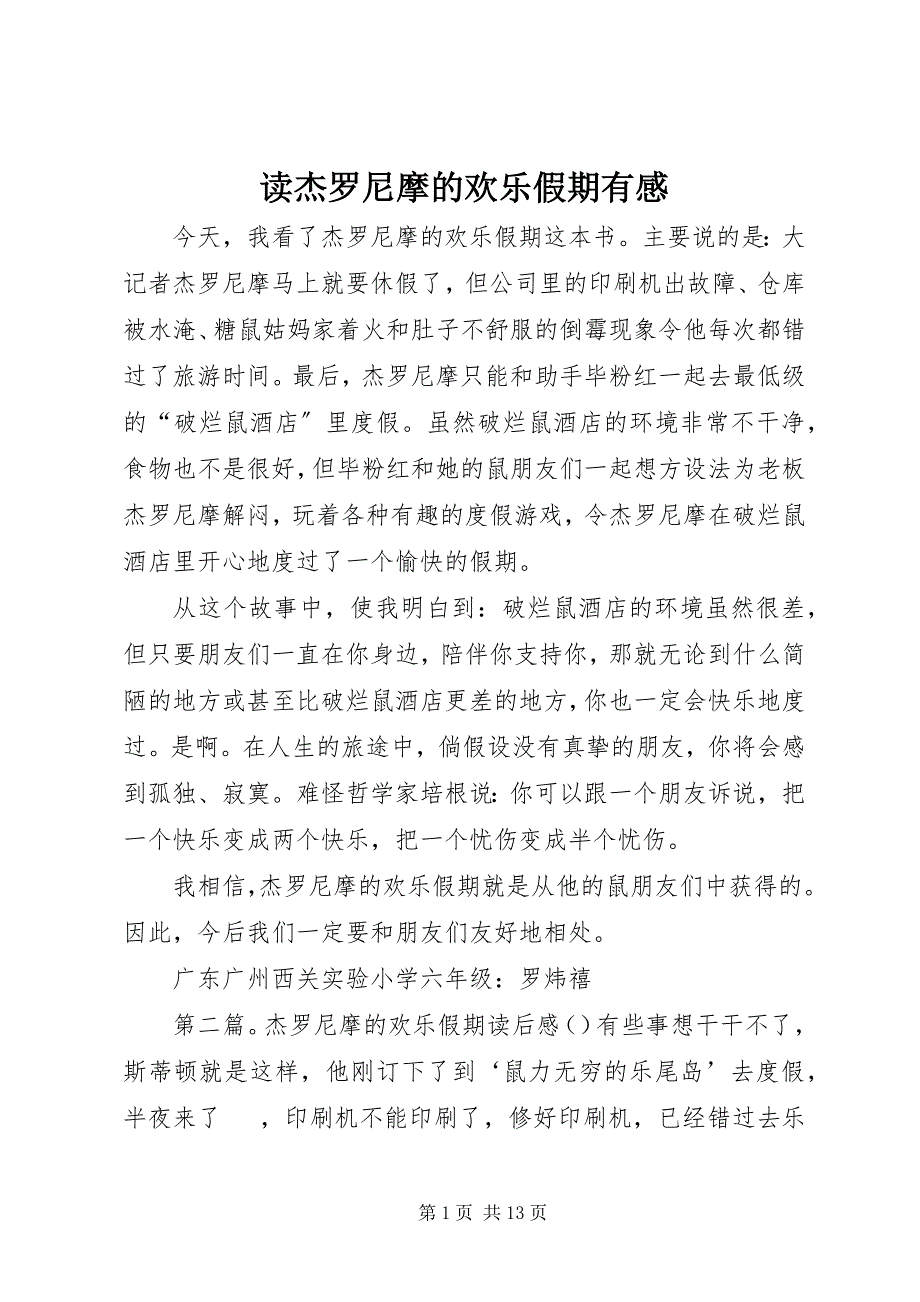 读杰罗尼摩的欢乐假期有感
今天，我看了杰罗尼摩的欢乐假期这本书。主要说的是：大
记者杰罗尼摩马上就要休假了，但公司里的印刷机出故障、仓库
被水淹、糖鼠姑妈家着火和肚子不舒服的倒霉现象令他每次都错
过了旅游时间。最后，杰罗尼摩只能和助手毕粉红一起去最低级
的“破烂鼠酒店〞里度假。虽然破烂鼠酒店的环境非常不干净，
食物也不是很好，但毕粉红和她的鼠朋友们一起想方设法为老板
杰罗尼摩解闷，玩着各种有趣的度假游戏，令杰罗尼摩在破烂鼠
酒店里开心地度过了一个愉快的假期。
从这个故事中，使我明白到：破烂鼠酒店的环境虽然很差，
但只要朋友们一直在你身边，陪伴你支持你，那就无论到什么简
陋的地方或甚至比破烂鼠酒店更差的地方，你也一定会快乐地度
过。是啊。在人生的旅途中，倘假设没有真挚的朋友，你将会感
到孤独、寂寞。难怪哲学家培根说：你可以跟一个朋友诉说，把
一个快乐变成两个快乐，把一个忧伤变成半个忧伤。
我相信，杰罗尼摩的欢乐假期就是从他的鼠朋友们中获得的。
因此，今后我们一定要和朋友们友好地相处。
广东广州西关实验小学六年级：罗炜禧
第二篇。杰罗尼摩的欢乐假期读后感（）有些事想干干不了，
斯蒂顿就是这样，他刚订下了到‘鼠力无穷的乐尾岛’去度假，
半夜来了　，印刷机不能印刷了，修好印刷机，已经错过去乐
第 1 页 共 13 页